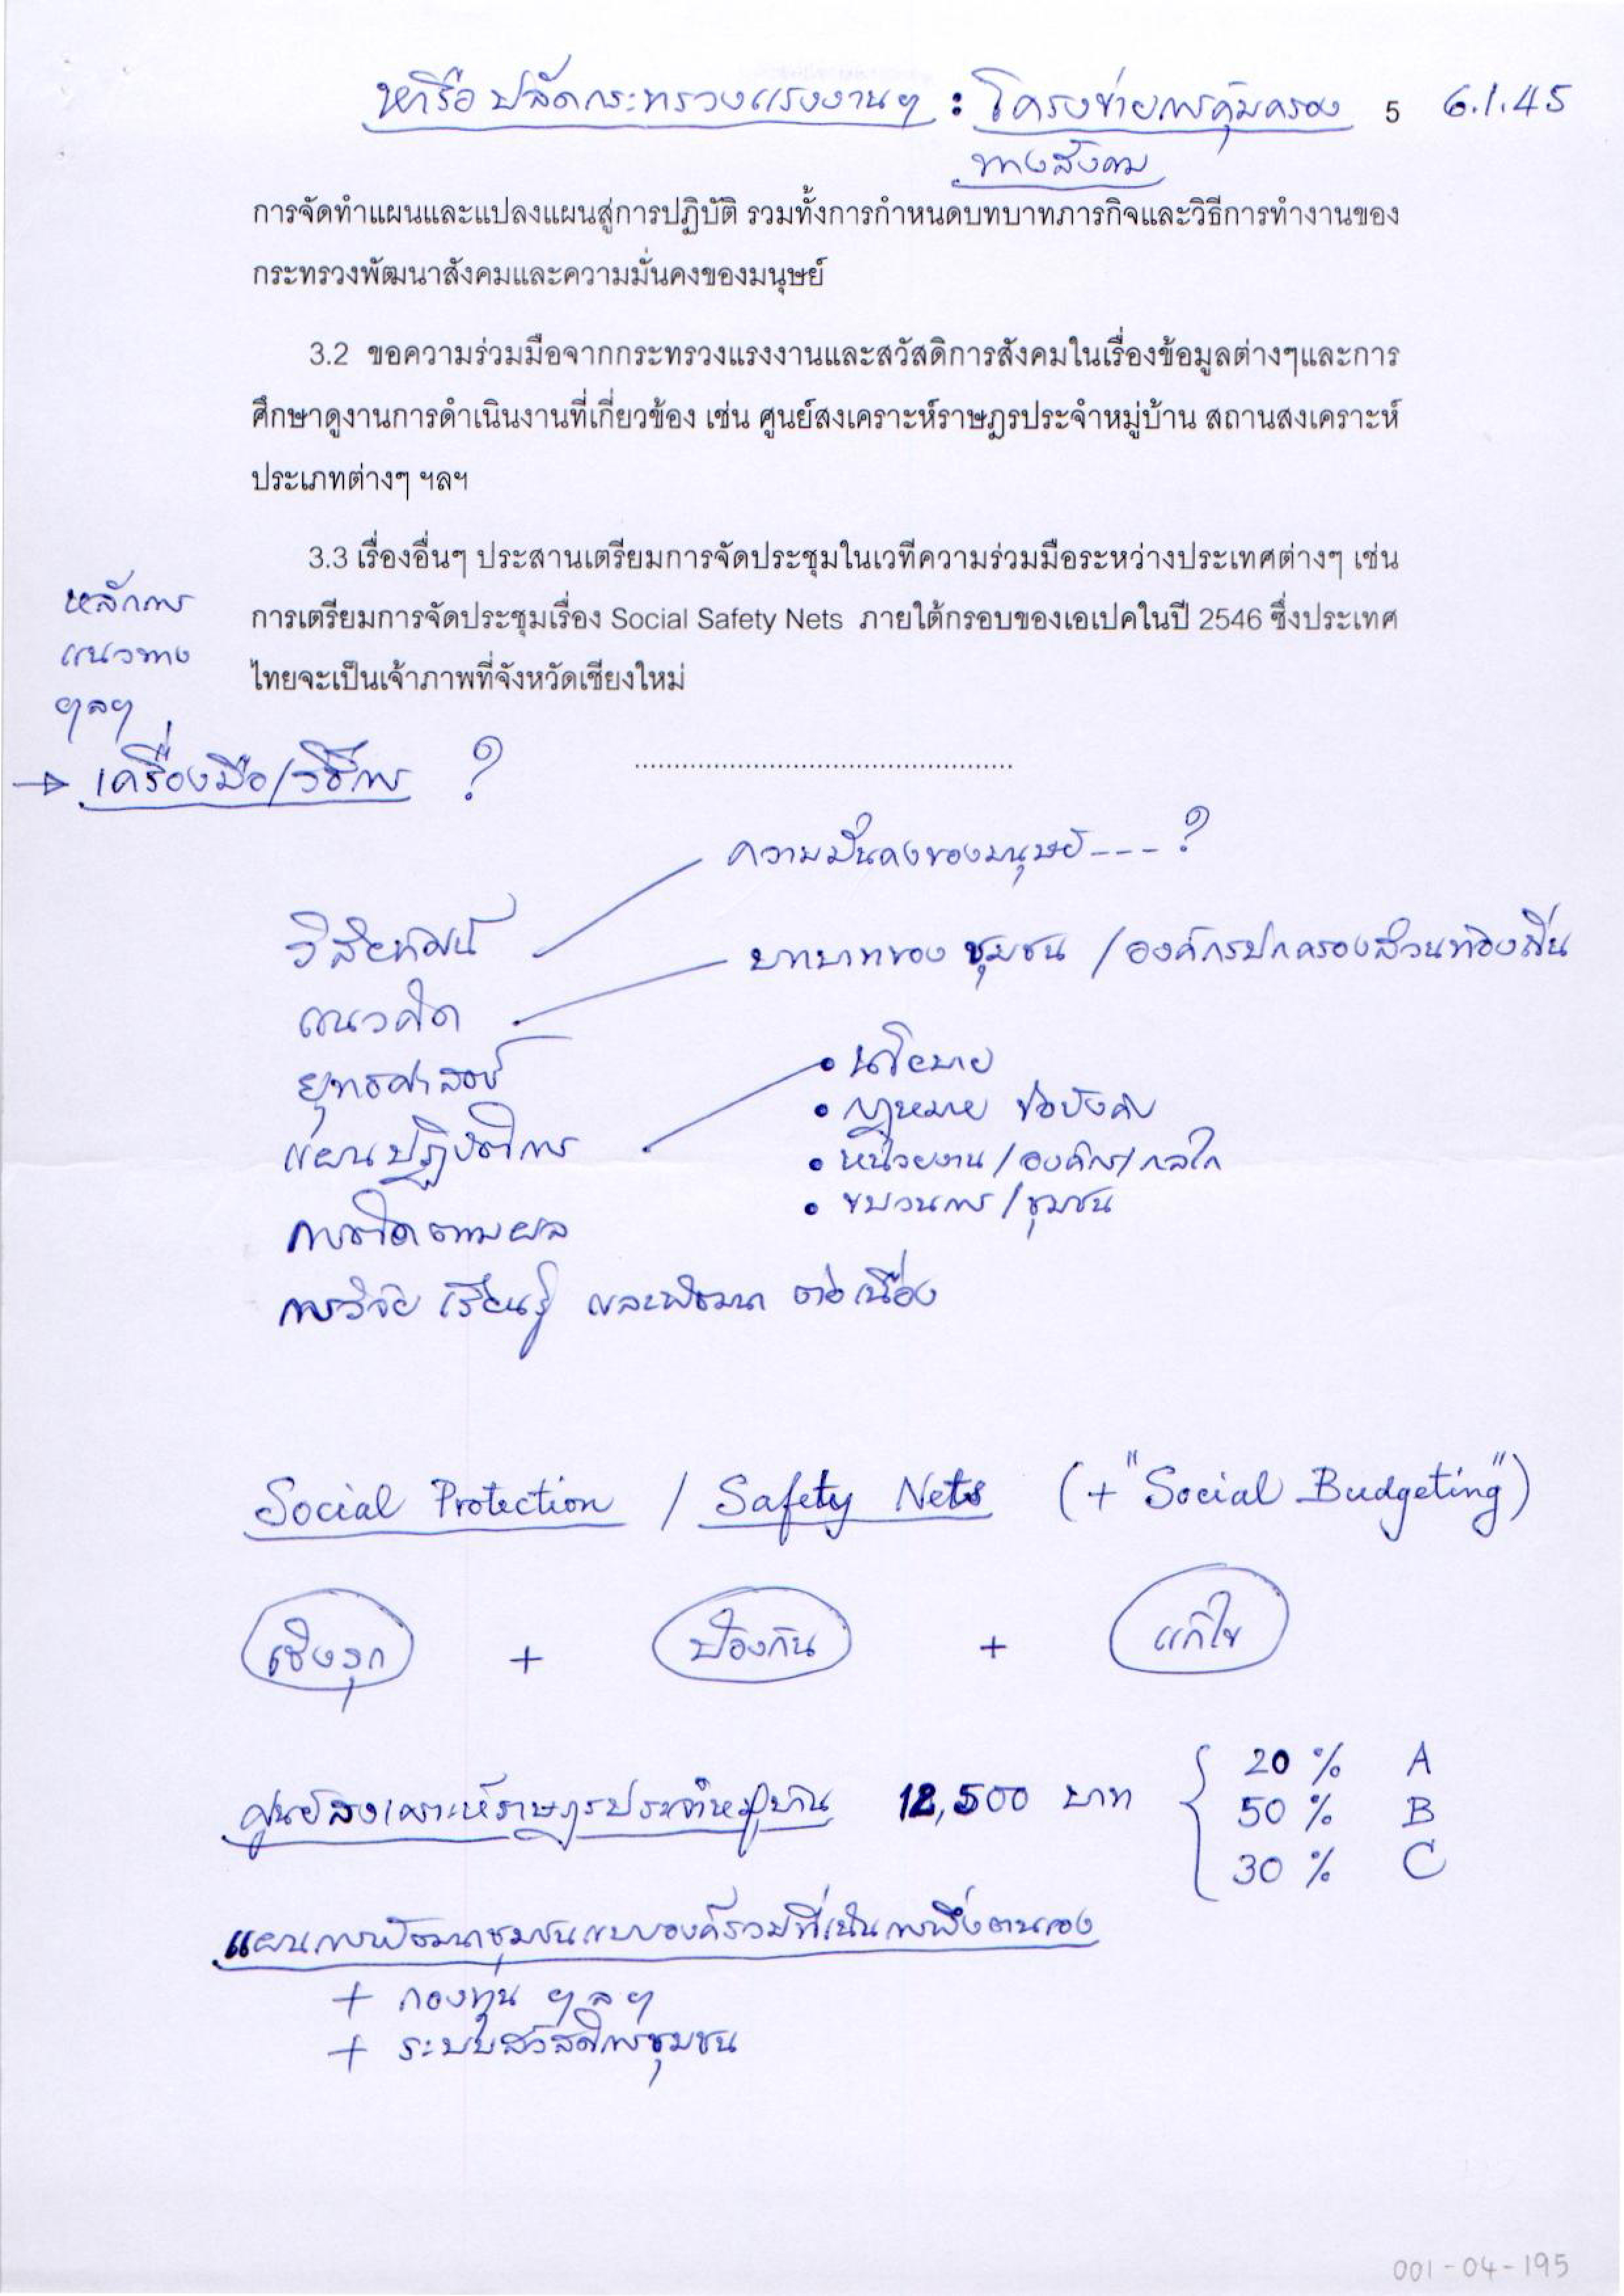 หารือ ปลัดกระทรวงแรงงานฯ : โครงข่ายการคุ้มครอง 5 6.1.45
ทางสังคม
การจัดทำแผนและแปลงแผนสู่การปฏิบัติ รวมทั้งการกำหนดบทบาทภารกิจและวิธีการทำงานของ
กระทรวงพัฒนาสังคมและความมั่นคงของมนุษย์
3.2 ขอความร่วมมือจากกระทรวงแรงงานและสวัสดิการสังคมในเรื่องข้อมูลต่างๆและการ
ศึกษาดูงานการดำเนินงานที่เกี่ยวข้อง เช่น ศูนย์สงเคราะห์ราษฎรประจำหมู่บ้าน สถานสงเคราะห์
ประเภทต่างๆ ฯลฯ
3.3 เรื่องอื่นๆ ประสานเตรียมการจัดประชุมในเวทีความร่วมมือระหว่างประเทศต่างๆ เช่น
การเตรียมการจัดประชุมเรื่อง Social Safety Nets ภายใต้กรอบของเอเปคในปี 2546 ซึ่งประเทศ
ไทยจะเป็นเจ้าภาพที่จังหวัดเชียงใหม่
หลักการ
แนวทาง
ฯลฯ
→ เครื่องมือ/วิธีการ ?
..................................................
ความมั่นคงของมนุษย์ --- ?
วิสัยทัศน์
บทบาทของ ชุมชน / องค์กรปกครองส่วนท้องถิ่น
แนวคิด
ยุทธศาสตร์
• นโยบาย
• กฎหมาย ข้อบังคับ
แผนปฏิบัติการ
• หน่วยงาน / องค์กร / กลไก
• ขบวนการ / ชุมชน
การติดตามผล
การวิจัย เรียนรู้ และพัฒนา ต่อเนื่อง
Social Protection / Safety Nets (+ "Social Budgeting")
เชิงรุก + ป้องกัน + แก้ไข
20 % A
ศูนย์สงเคราะห์ราษฎรประจำหมู่บ้าน 12,500 บาท 50 % B
30 % C
แผนการพัฒนาชุมชนแบบองค์รวมที่เน้นการพึ่งตนเอง
+ กองทุน ฯลฯ
+ ระบบสวัสดิการชุมชน
001-04-195